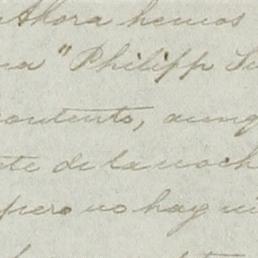 Ahora hemos
na "Philipp Su
contento, aunq
te de la noch
pero no hay ni